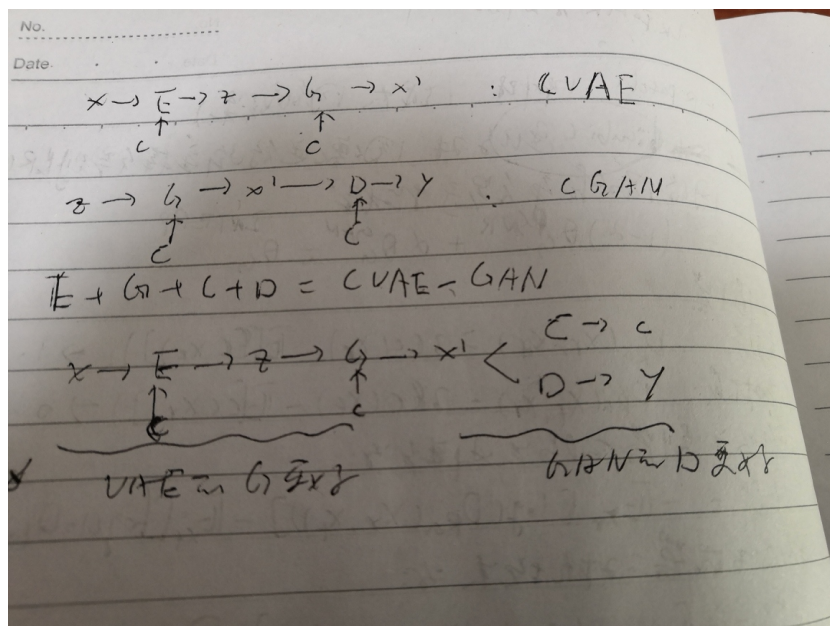 No.
Date.
x → E → z → G → x' : CVAE
↑ ↑
C C
z → G → x' → D → Y : CGAN
↑ ↑
C C
E + G + C + D = CVAE - GAN
C → c
x → E → z → G → x' <
D → Y
↑ ↑
C C
VAE G
GAN D